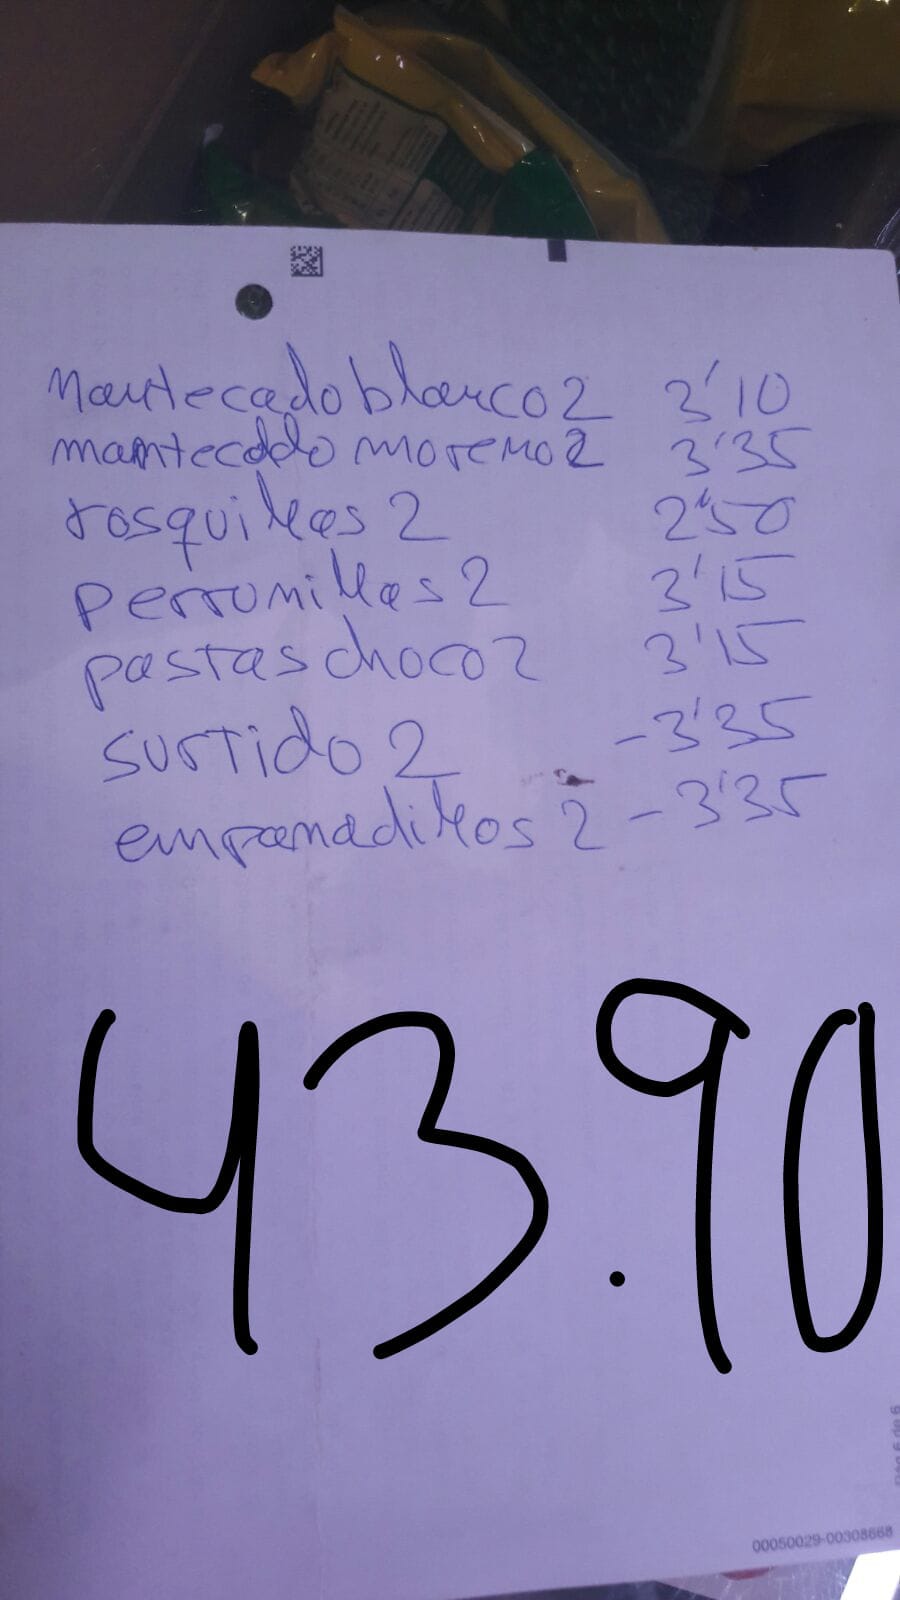 Mantecado blanco 2 3'10
mantecado moreno 2 3'35
rosquillas 2 2'50
perronillas 2 3'15
pastas choco 2 3'15
surtido 2 -3'35
empanadillos 2 - 3'35
43.90
Pág 6 de 6
00050029-00308668